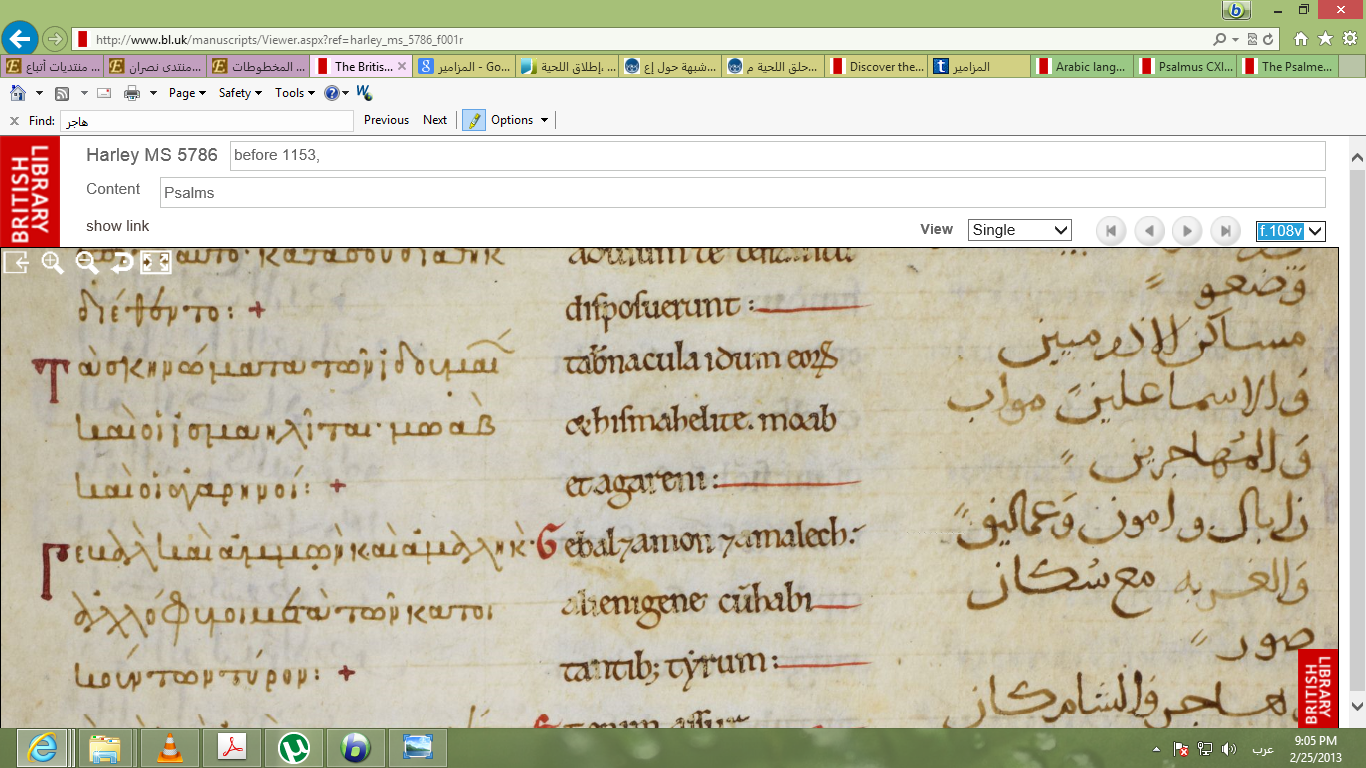 http://www.bl.uk/manuscripts/Viewer.aspx?ref=harley_ms_5786_f001r
منتديات أتباع ...
منتدى نصران...
المخطوطات ...
The Britis...
المزامير - Go...
إطلاق اللحية، ...
شبهة حول إع...
حلق اللحية م...
Discover the...
المزامير
Arabic lang...
Psalmus CXI...
The Psalme...
Page
Safety
Tools
Find:
هاجر
Previous
Next
Options
LIBRARY
BRITISH
Harley MS 5786
before 1153,
Content
Psalms
show link
View
Single
f.108v
διέθοντο: +
disposuerunt:
وَضعو
Τὰ σκηνώματα τῶν ἰδουμαί
tabnacula idumeorꝝ
مساكن الاذوميين
καὶ οἱ ἰσμαηλῖται· μωὰβ
&hismahelite. moab
وَالاسماعلين مواب
καὶ οἱ ἀγαρηνοί: +
et agareni:
وَالمُهاجرين
Γεβὰλ καὶ ἀμμὼν καὶ ἀμαλὴκ·
Gebal ⁊ amon ⁊ amalech:
زابال وامون وَعماليق
ἀλλόφυλοι μετὰ τῶν κατοι
alienigene cū habi
وَالغربه مع سُكان
κούντων τύρον: +
tantib; tẏrum:
صور
LIBRARY
BRITISH
عرب
9:05 PM
2/25/2013